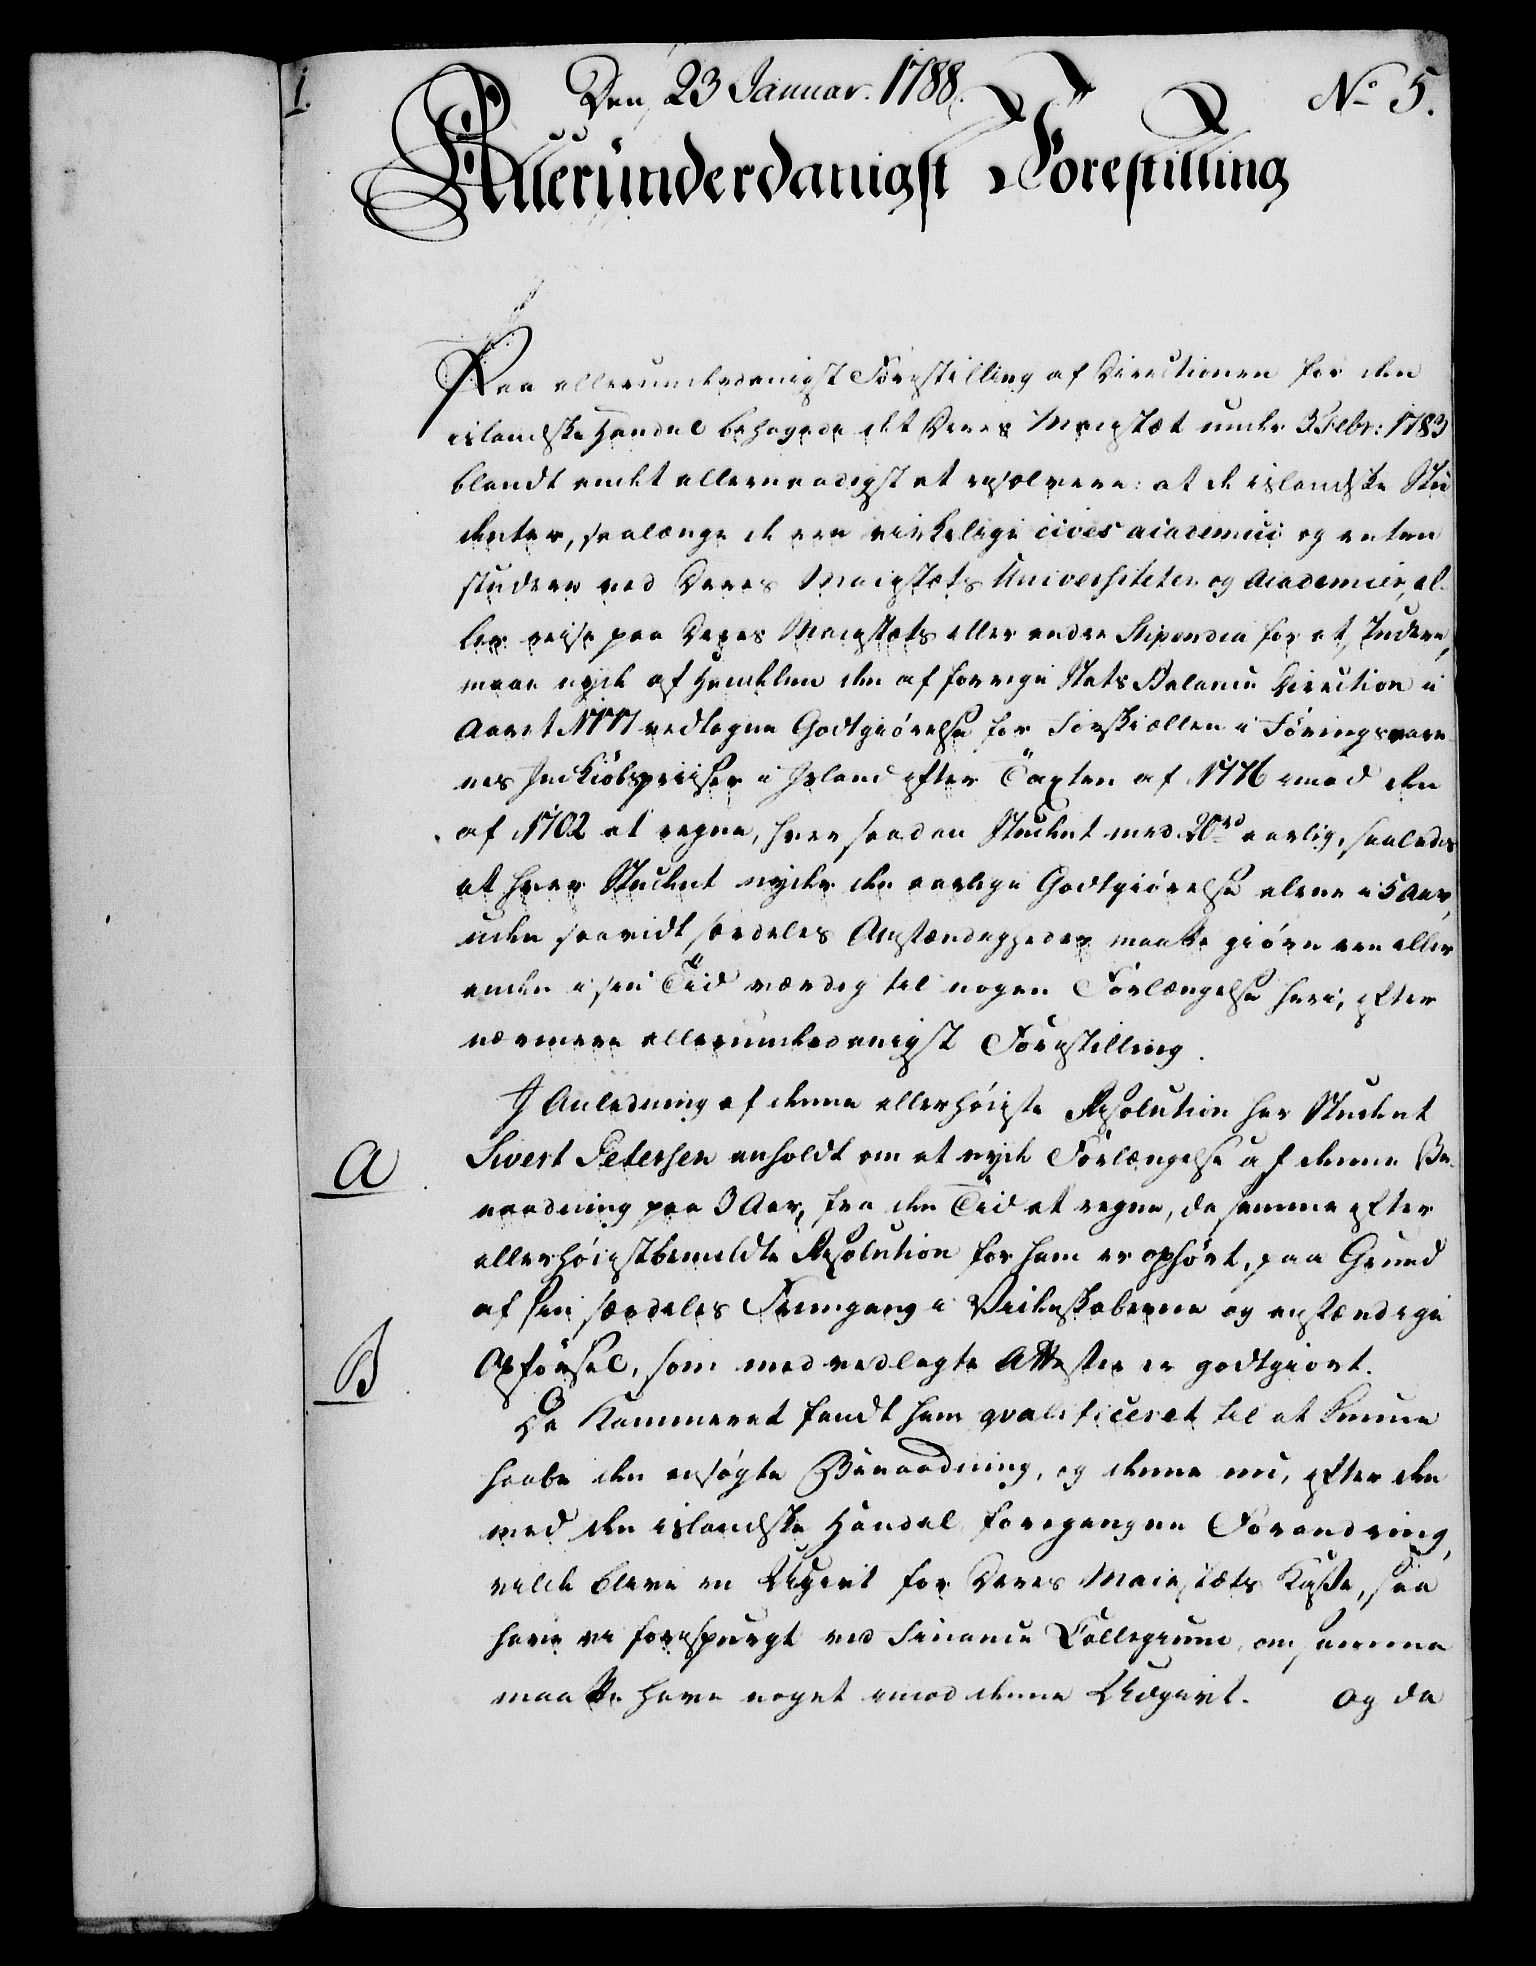 1.
Den 23 Januar. 1788.
No 5.
Allerunderdanigst Forestilling
Paa allerunderdanigst Forestilling af Directionen for den
islandske Handel behagede det Deres Majestæt under 3 Febr: 1783
blandt andet allernaadigst at resolvere: at de islandske Stu
denter, saalænge de ere virkelige cives academici og enten
studere ved Deres Majestæts Universiteter og Academier, el-
ler reise paa Deres Majestæts eller andre Stipendia for at studere,
maae nyde af Handelen den af forrige Stats Balance Direction i
Aaret 1777 vedtagne Godtgiørelse for Forskiællen i Føringsvare
nes Indkiøbspriser i Island efter Taxten af 1776 imod den
af 1702 at regne, hver saadan Student med 20rd aarlig, saaledes
at hver Student nyder den aarlige Godtgiørelse alene i 5 Aar,
uden saavidt særdeles Omstændigheder maatte giøre een eller
anden i sin Tid værdig til nogen Forlængelse heri, efter
nærmere allerunderdanigst Forestilling.
I Anledning af denne allerhøieste Resolution har Student
A
Sivert Petersen anholdt om at nyde Forlængelse af denne Be-
naadning paa 3 Aar, fra den Tid at regne, da samme efter
allerhøistbemeldte Resolution for ham er ophørt, paa Grund
af sin særdeles Fremgang i Videnskaberne og anstændige
B
Opførsel, som med vedlagte Attester er godtgiort.
Da Kammeret fandt ham qvalificeret til at kunne
haabe den ansøgte Benaadning, og denne nu, efter den
med den islandske Handel foregangne Forandring,
vilde blive en Udgivt for Deres Majestæts Kasse, saa
have vi forespurgt ved Finance Collegium, om samme
maatte have noget imod denne Udgivt. Og da